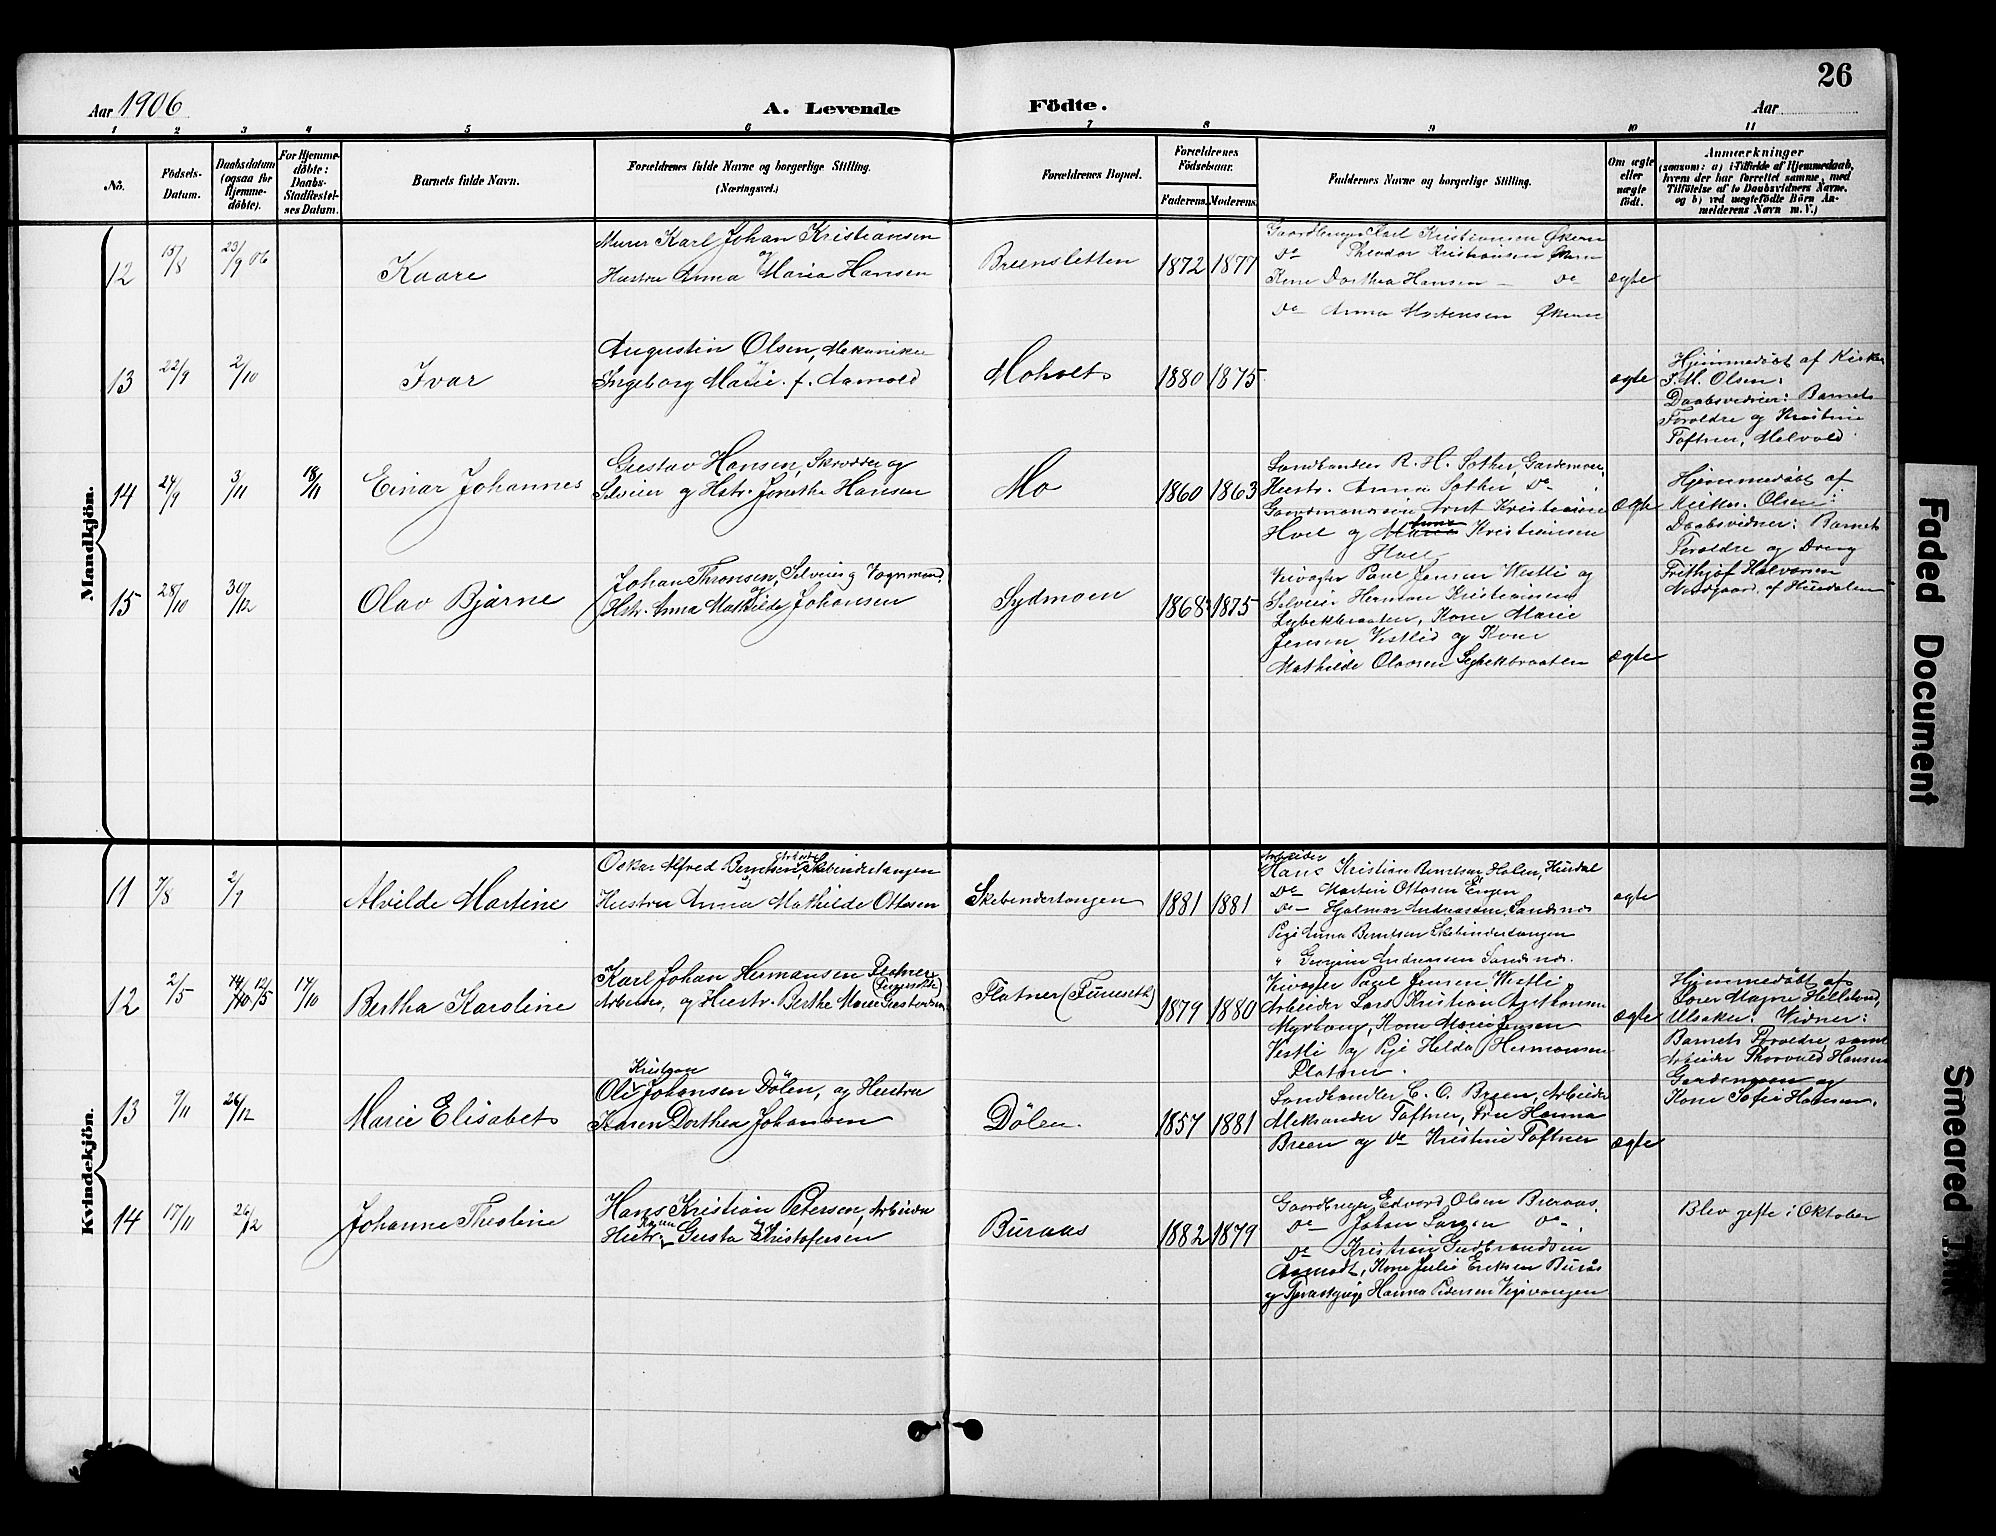 26
Aar 1906
A. Levende Födte.
Aar
1 2 3 4 5 6 7 8 9 10 11
No.
Födsels-Datum.
Daabsdatum (ogsaa for Hjemme-döbte).
For Hjemme-döbte: Daabs-Stadfæstel-ses Datum.
Barnets fulde Navn.
Forældrenes fulde Navne og borgerlige Stilling.
(Næringsvei.)
Forældrenes Bopæl.
Forældrenes Födselsaar.
Faderens. Moderens.
Faddernes Navne og borgerlige Stilling.
Om ægte eller uægte födt.
Anmærkninger
(saasom: a) i Tilfælde af Hjemmedaab,
hvem der har forrettet samme, med
Tilföielse af to Daabsvidners Navne,
og b) ved uægtefödte Börn An-
melderens Navn m. V.)
Mandkjön.
12 15/8 23/9 06 Kaare
Murer Karl Johan Kristiansen
og
Hustru Anna Maria Hansen
Breensletten 1872 1877
Gaardbruger Karl Kristiansen Økern
Do Theodor Kristiansen Økern
Kone Dorthea Hansen — Do
Do Anna Mortensen Økern
ægte
13 22/9 2/10 Ivar
Augustin Olsen, Mekaniker
Ingeborg Marie f. Aamold
Moholt 1880 1875
ægte
Hjemmedøbt af Kirkes.
J. M. Olsen:
Daabsvidner: Barnets
Foroldre og Kristine
Toftner, Melvold.
14 24/9 3/11 18/11 Einar Johannes
Gustav Hansen, Skrædder og
Selveier og Hstr. Jonetha Hansen
Mo 1860 1863
Landhandler R. H. Sother, Gardemoen,
Hustr. Anna Sother Do
Gaardmandssøn Arnt Kristiansen
Hvel og Anna Kristiansen
Hvel
ægte
Hjemmedøbt af
Kirkes. Olsen:
Daabsvidner: Barnets
Foroldre og Dreng
Frithjof Halvorsen
Nordgaard. af Hurdalen
15 28/10 31/12 Olav Bjarne
Johan Thronsen, Selveier og Vognmand
og
Hstr. Anna Mathilde Johansen
Sydmoen 1868 1875
Veivogter Paul Jensen Westli og
Selveier Herman Kristiansen
Lybekbraaten, Kone Marie
Jensen Vestlid og Kone
Mathilde Olavsen Lybekbraaten
ægte
Kvindekjön.
11 7/8 2/9 Alvilde Martine
Oskar Alfred Berntsen, Arbeider Skebindertangen
og
Hustru Anna Mathilde Ottesen
Skebindertangen 1881 1881
Arbeider
Hans Kristian Berntsen Holen, Hurdal
Do Martin Ottosen Engen
Do — Hjalmar Andreassen, Sandsnes
Pige Anna Berntsen Skebindertangen
" Georgine Andreassen Sandsnes.
ægte
12 2/5 14/10 12/5 17/10 Bertha Karoline
Karl Johan Hermansen Flatner
(Furuseth)
Arbeider, og Hustr. Berthe Marie Gustavsen
Flatner (Furuseth) 1879 1880
Veivogter Paul Jensen Westli,
Arbeider Lars Kristian Agethansen
Myrborg, Kone Marie Jensen
Vestli og Pige Helda Hermansen
Flatner.
ægte
Hjemmedøbt af
Lærer Magne Hellelund,
Ulsaker: Vidner:
Barnets Foroldre, samt
Arbeider Thorvald Hansen
Gardemoen og
Kone Sofie Hansen.
13 9/11 26/12 Marie Elisabet
Kristian
Ole Johansen Dølen, og Hustru
Karen Dorthea Johansen
Dølen. 1857 1881
Landhandler C. O. Breen, Arbeider
Aleksander Toftner, Frue Hanna
Breen og Do Kristine Toftner
ægte
14 17/11 26/12 Johanne Theoline
Hans Kristian Petersen, Arbeider
og
Hustr. Karen Gusta Kristofersen
Buraas 1882 1879
Gaardbruger Edvard Olsen Buraas
Do — Johan Larsen Do —.
Do Kristian Gudbrandsen
Aamodt, Kone Julie Eriksen Burås
og Tjenestepige Hanna Pedersen Vigevangen
Blev gifte i Oktober
Faded Document
Smeared Ink